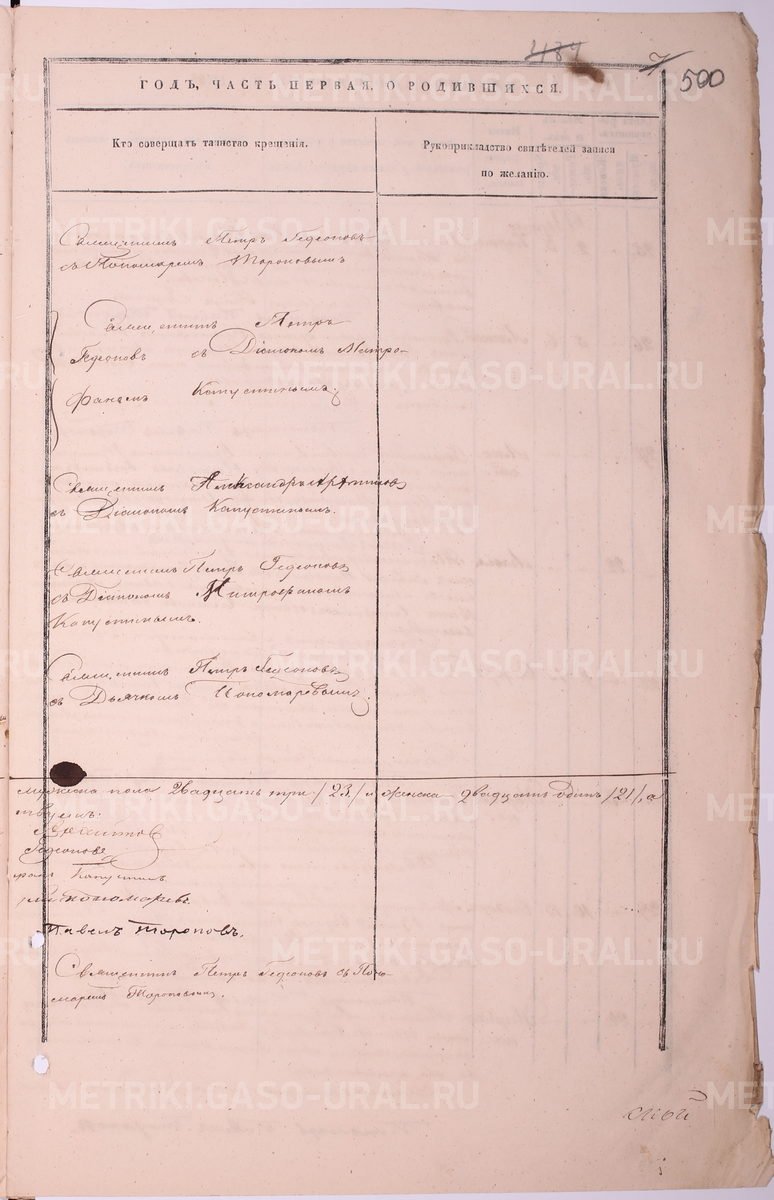 484
7
500
ГОДЪ, ЧАСТЬ ПЕРВАЯ, О РОДИВШИХСЯ.
Кто совершалъ таинство крещенія.
Рукоприкладство свидѣтелей записи
по желанію.
Священникъ Петръ Гедеоновъ
съ Пономаремъ Тороповымъ
Священникъ Петръ
Гедеоновъ съ Діакономъ Митро-
фаномъ Капустинымъ
Священникъ Александръ
съ Діакономъ Капустинымъ.
Священникъ Петръ Гедеоновъ
съ Діакономъ Митрофаномъ
Капустинымъ.
Священникъ Петръ Гедеоновъ
съ Дьячкомъ Пономаревымъ
мужеска пола двадцать три /23/ и женска двадцать одинъ /21/, а
Гедеоновъ
Капустинъ
Пономаревъ
Павелъ Тороповъ.
Священникъ Петръ Гедеоновъ съ Поно-
маремъ Тороповымъ.
METRIKI.GASO-URAL.RU